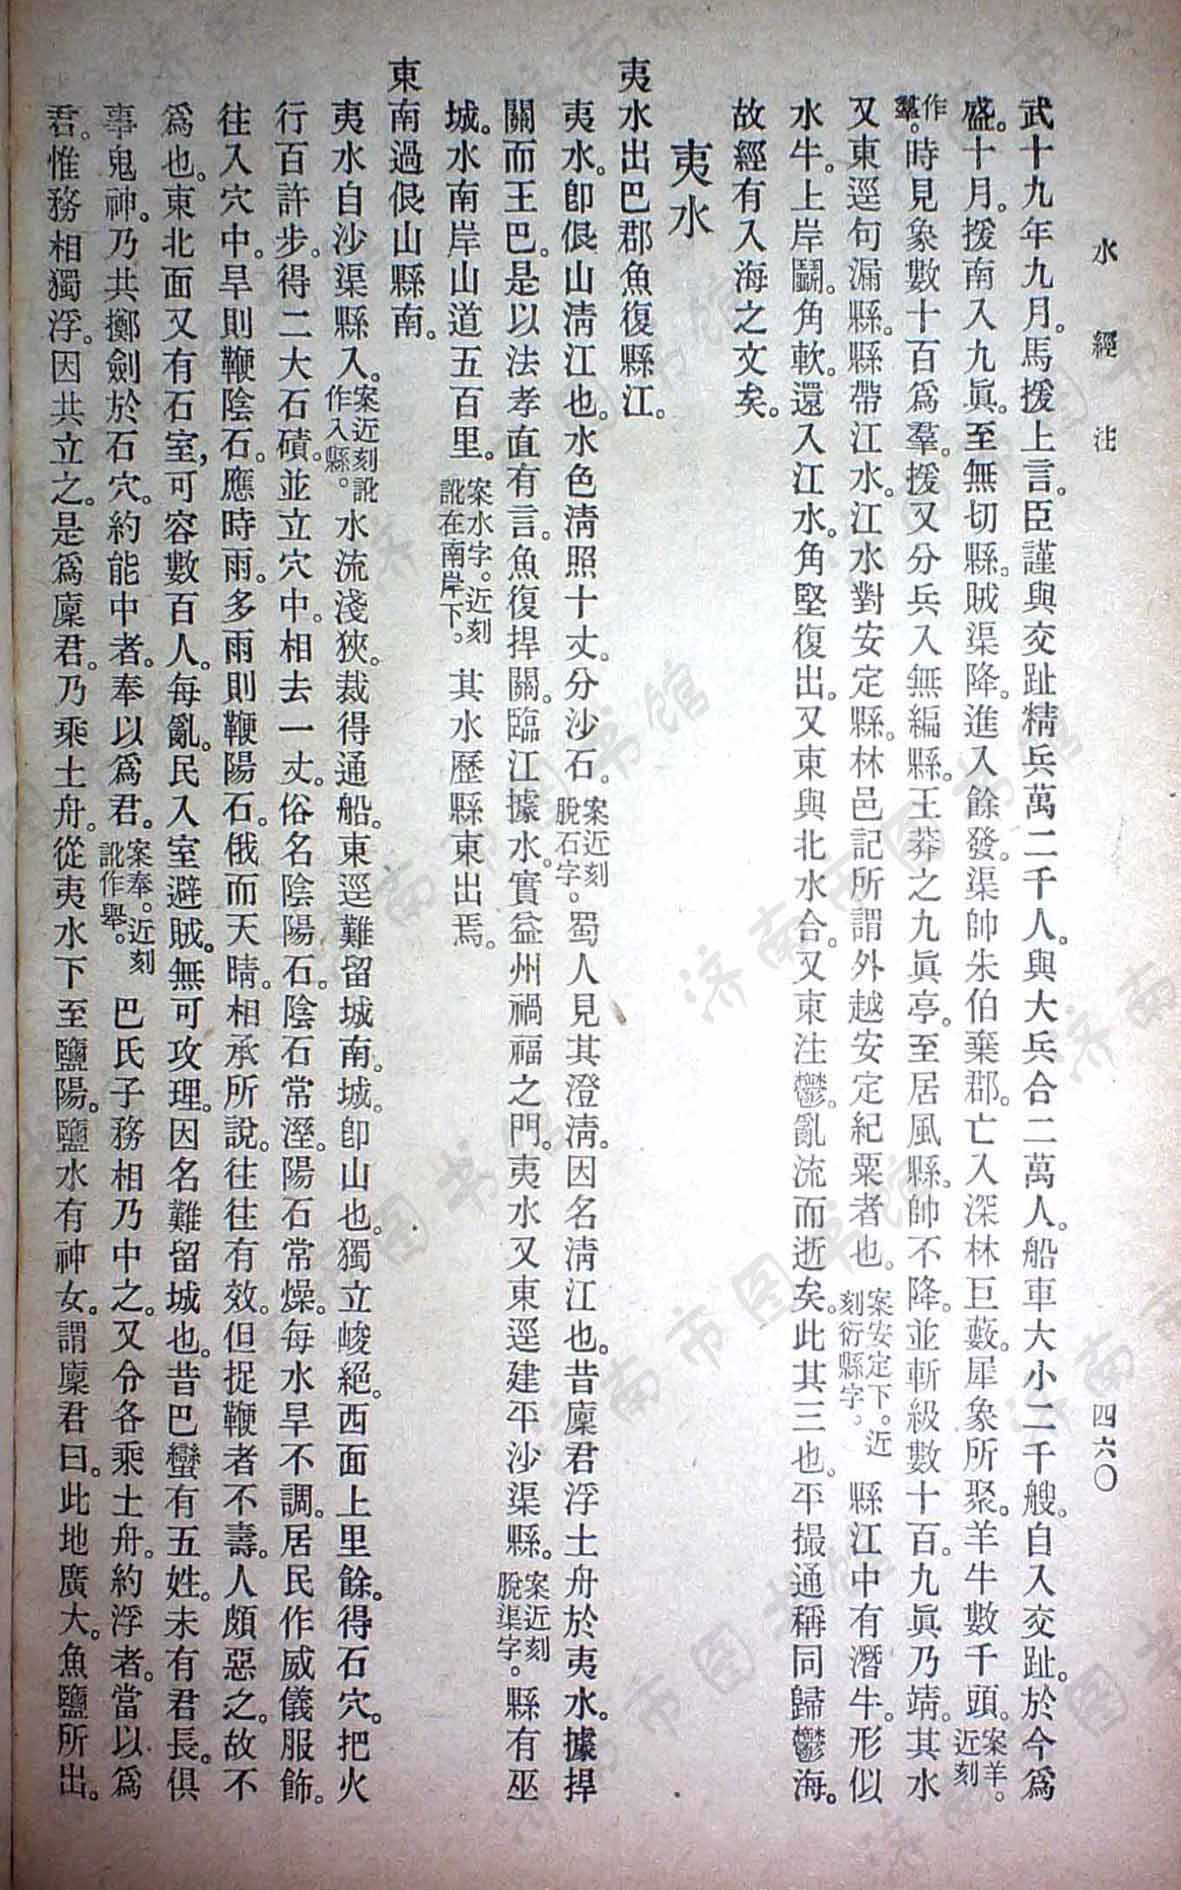 水經注
四六〇
武十九年九月。馬援上言。臣謹與交趾精兵萬二千人。與大兵合二萬人。船車大小二千艘。自入交趾。於今爲
盛。十月。援南入九眞。至無切縣。賊渠降。進入餘發。渠帥朱伯棄郡。亡入深林巨藪。犀象所聚。羊牛數千頭。案羊。近刻
作羣。時見象數十百爲羣。援又分兵入無編縣。王莽之九眞亭。至居風縣。帥不降。並斬級數十百。九眞乃靖。其水
又東逕句漏縣。縣帶江水。江水對安定縣。林邑記所謂外越安定紀粟者也。案安定下。近刻衍縣字。縣江中有潛牛。形似
水牛。上岸鬭。角軟。還入江水。角堅復出。又東與北水合。又東注鬱。亂流而逝矣。此其三也。平撮通稱同歸鬱海。
故經有入海之文矣。
夷水
夷水出巴郡魚復縣江。
夷水。卽佷山淸江也。水色淸照十丈。分沙石。案近刻脫石字。蜀人見其澄淸。因名淸江也。昔廩君浮土舟於夷水。據捍
關而王巴。是以法孝直有言。魚復捍關。臨江據水。實益州禍福之門。夷水又東逕建平沙渠縣。案近刻脫渠字。縣有巫
城。水南岸山道五百里。案水字。近刻訛在南岸下。其水歷縣東出焉。
東南過佷山縣南。
夷水自沙渠縣入。案近刻訛作入縣。水流淺狹。裁得通船。東逕難留城南。城卽山也。獨立峻絕。西面上里餘。得石穴。把火
行百許步。得二大石磧。並立穴中。相去一丈。俗名陰陽石。陰石常溼。陽石常燥。每水旱不調。居民作威儀服飾。
往入穴中。旱則鞭陰石。應時雨。多雨則鞭陽石。俄而天晴。相承所說。往往有效。但捉鞭者不壽。人頗惡之。故不
爲也。東北面又有石室，可容數百人。每亂。民入室避賊。無可攻理。因名難留城也。昔巴蠻有五姓。未有君長。俱
事鬼神。乃共擲劍於石穴。約能中者。奉以爲君。案奉。近刻訛作舉。巴氏子務相乃中之。又令各乘土舟。約浮者。當以爲
君。惟務相獨浮。因共立之。是爲廩君。乃乘土舟。從夷水下至鹽陽。鹽水有神女。謂廩君曰。此地廣大。魚鹽所出。